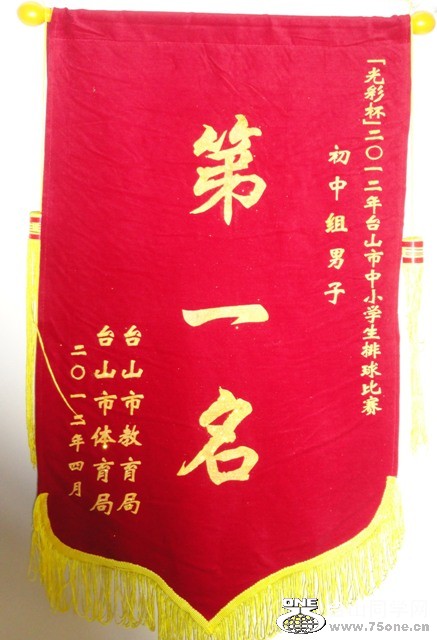 「光彩杯」二〇一二年台山市中小学生排球比赛
初中组男子
第一名
台山市教育局
台山市体育局
二〇一二年四月
ONE
www.75one.cn